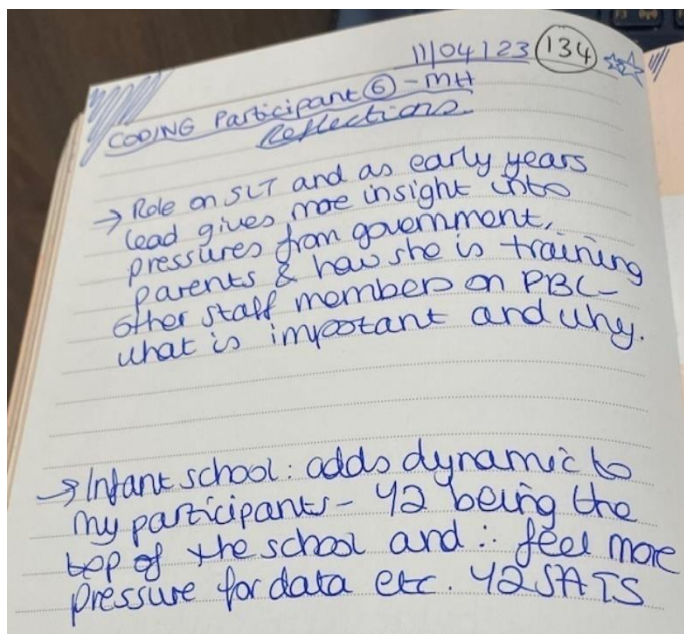 11/04/123 134
CODING Participant 6 - MH
Reflections
→ Role on SLT and as early years
lead gives more insight into
pressures from government,
parents & how she is training
other staff members on PBL -
what is important and why.
→ Infant school: adds dynamic to
my participants - Y2 being the
top of the school and ∴ feel more
pressure for data etc. Y2 SATS